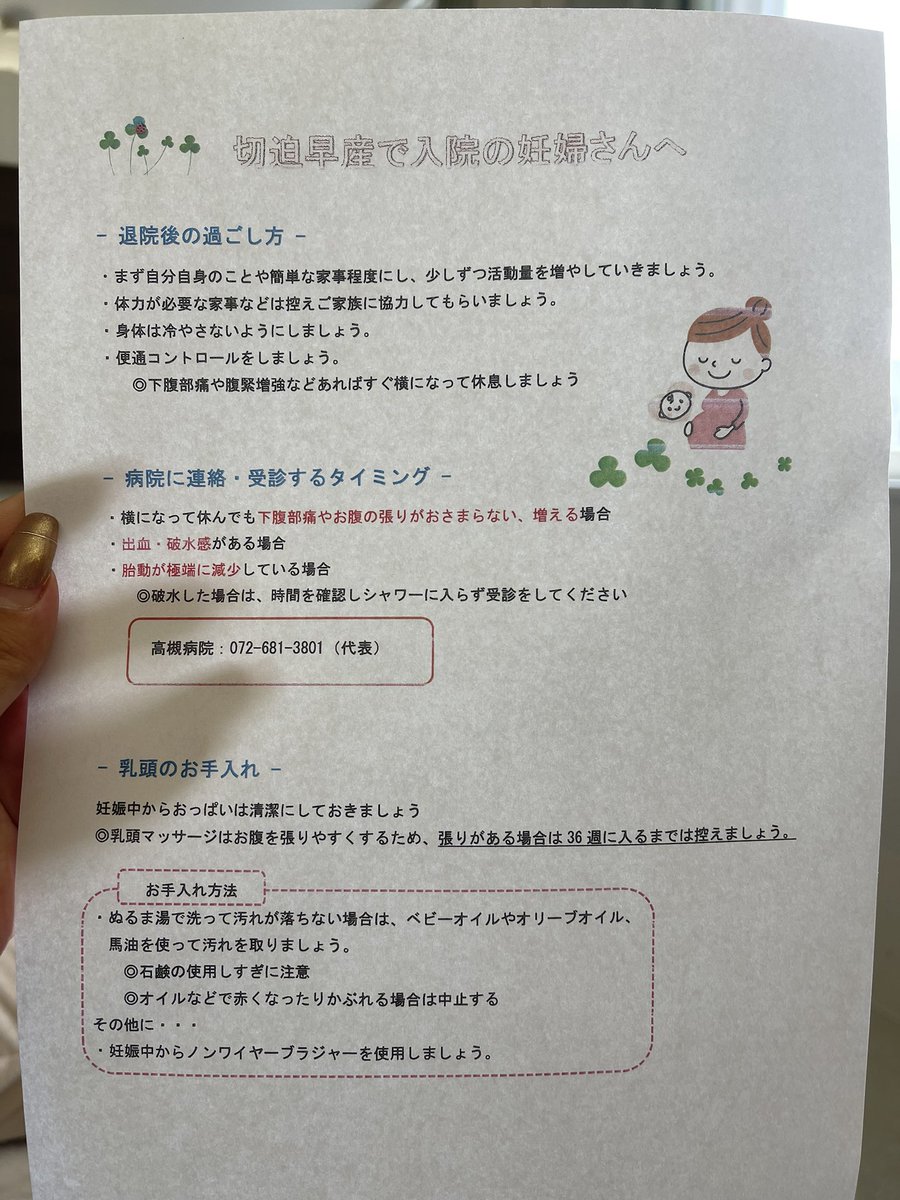 切迫早産で入院の妊婦さんへ
- 退院後の過ごし方 -
・まず自分自身のことや簡単な家事程度にし、少しずつ活動量を増やしていきましょう。
・体力が必要な家事などは控えご家族に協力してもらいましょう。
・身体は冷やさないようにしましょう。
・便通コントロールをしましょう。
◎下腹部痛や腹緊増強などあればすぐ横になって休息しましょう
- 病院に連絡・受診するタイミング -
・横になって休んでも下腹部痛やお腹の張りがおさまらない、増える場合
・出血・破水感がある場合
・胎動が極端に減少している場合
◎破水した場合は、時間を確認しシャワーに入らず受診をしてください
高槻病院：072-681-3801（代表）
- 乳頭のお手入れ -
妊娠中からおっぱいは清潔にしておきましょう
◎乳頭マッサージはお腹を張りやすくするため、張りがある場合は 36 週に入るまでは控えましょう。
お手入れ方法
・ぬるま湯で洗って汚れが落ちない場合は、ベビーオイルやオリーブオイル、
馬油を使って汚れを取りましょう。
◎石鹸の使用しすぎに注意
◎オイルなどで赤くなったりかぶれる場合は中止する
その他に・・・
・妊娠中からノンワイヤーブラジャーを使用しましょう。